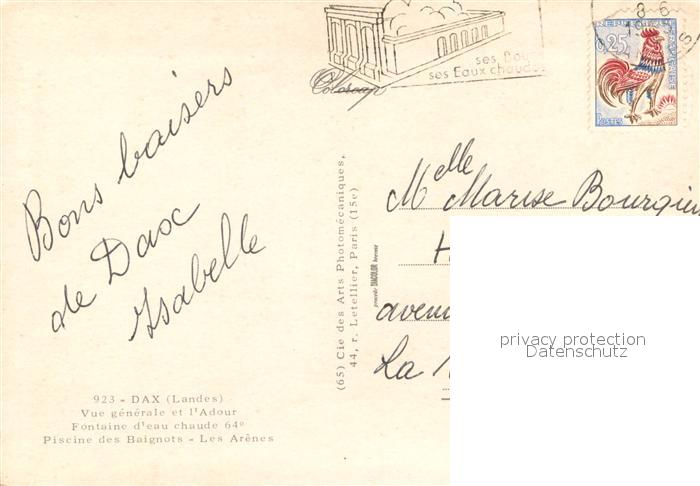 8 6
ses Bou
ses Eaux chaude
RÉPUBLIQUE FRANÇAISE
0,25
POSTES
Bons baisers
de Dax
Isabelle
Melle Marise Bourgui
H
aven
La
(65) Cie des Arts Photomécaniques,
44, r. Letellier, Paris (15e)
procédé DIACOLOR breveté
privacy protection
Datenschutz
923 - DAX (Landes)
Vue générale et l'Adour
Fontaine d'eau chaude 64º
Piscine des Baignots - Les Arènes